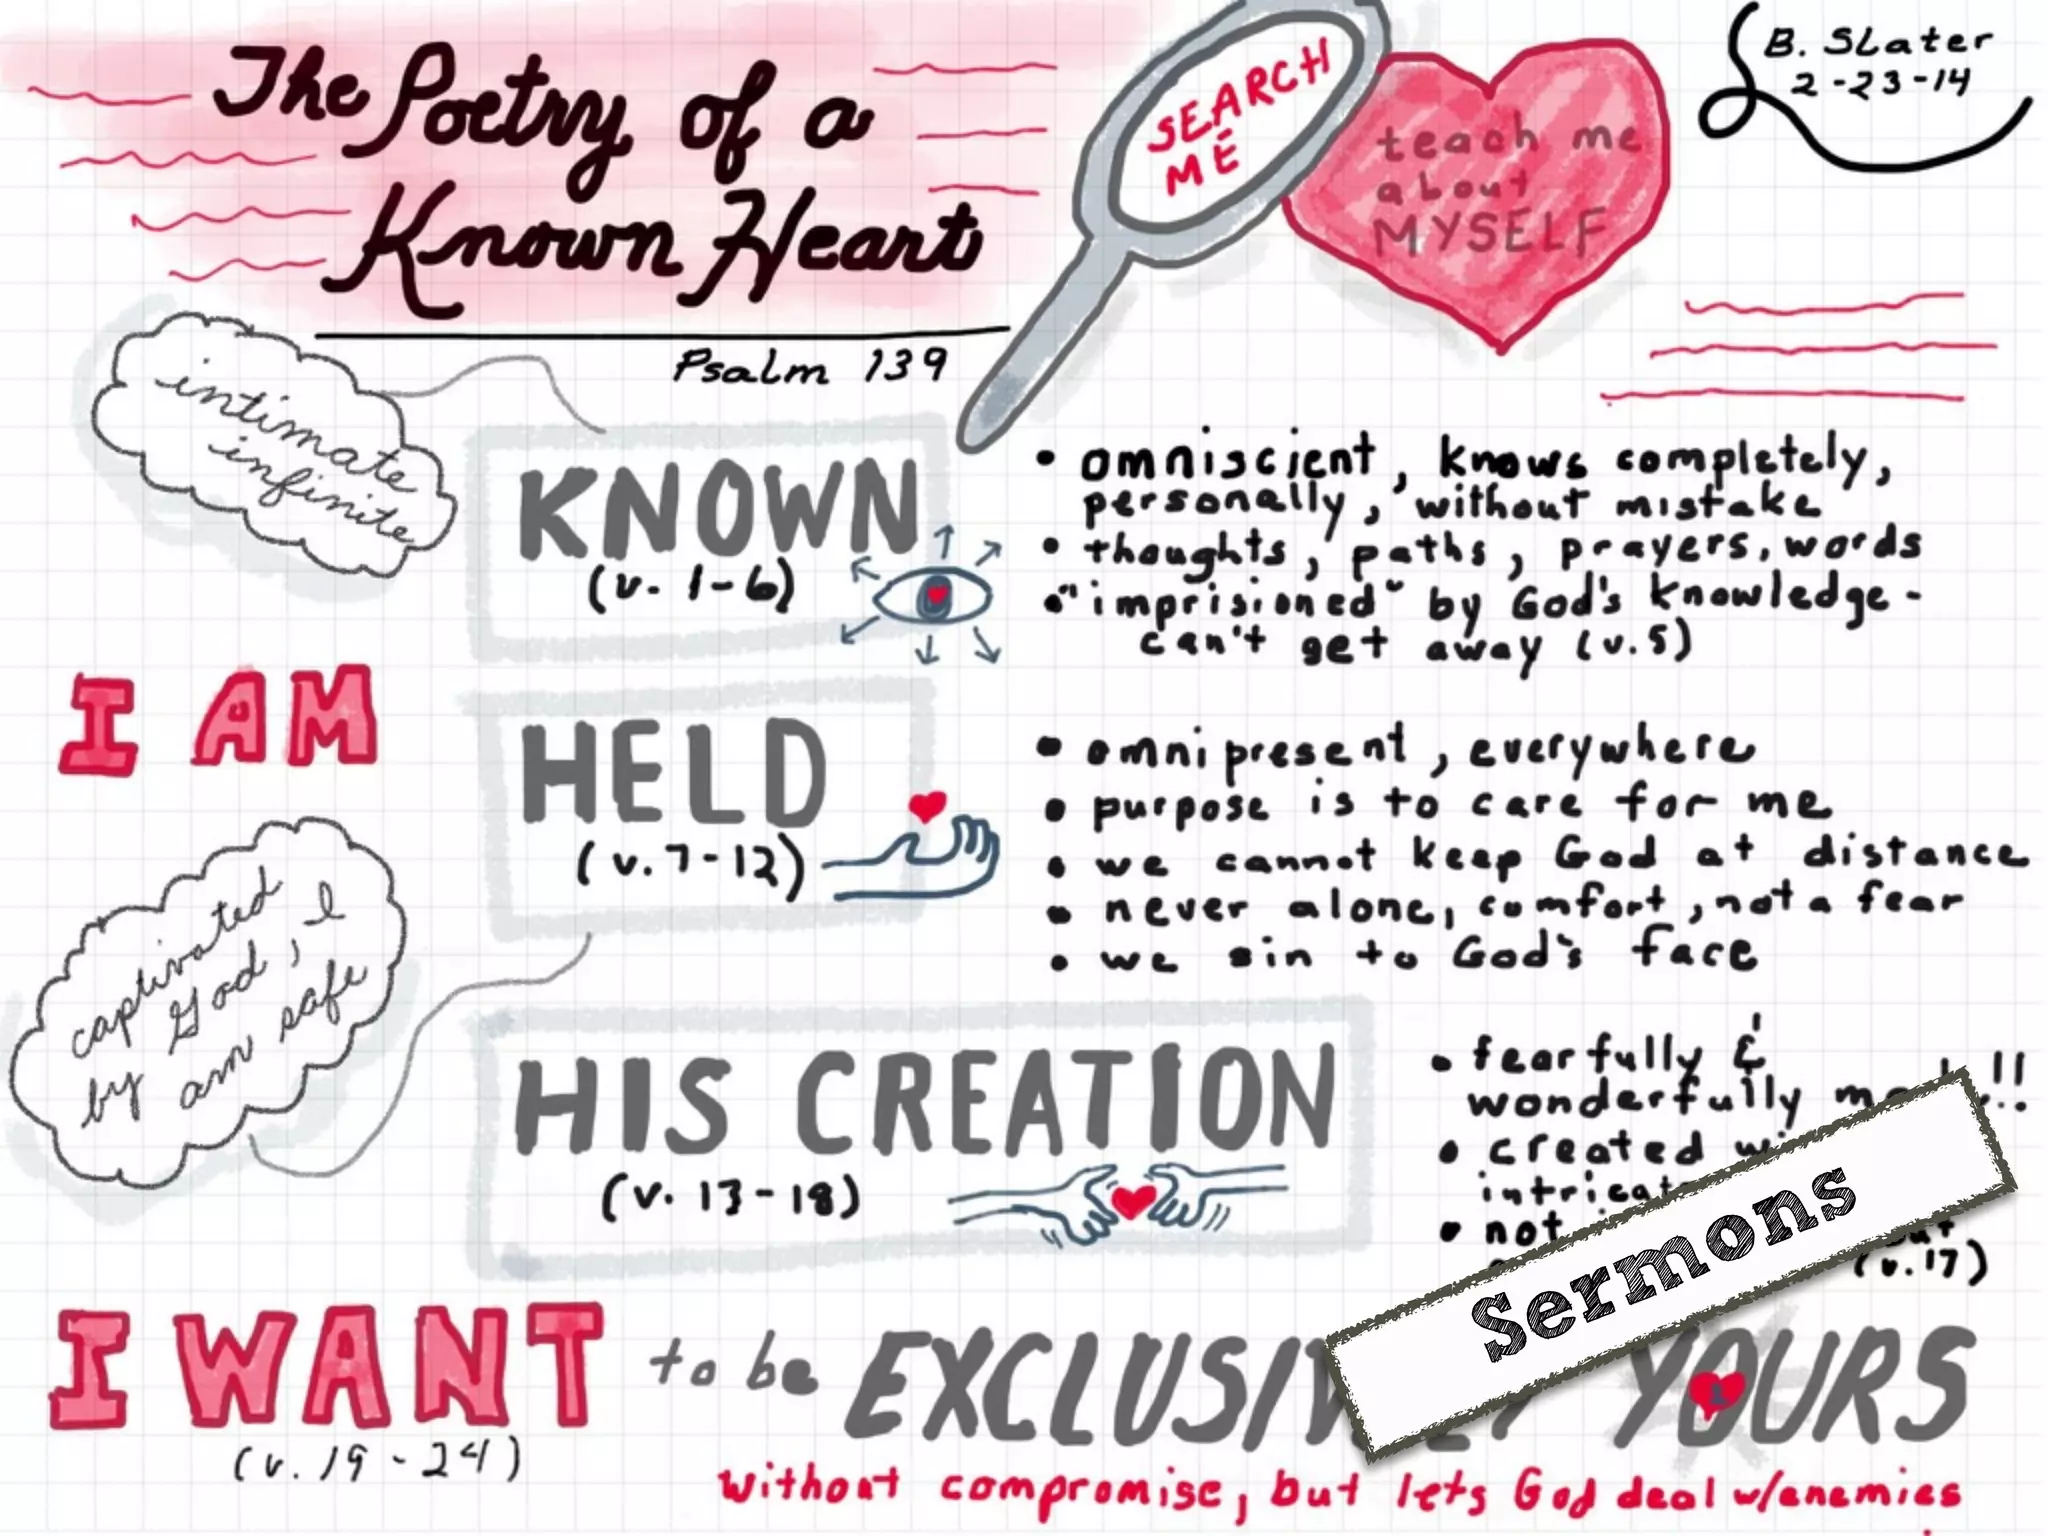 The Poetry of a
Known Heart
Psalm 139
SEARCH
ME
teach me
about
MYSELF
B. Slater
2-23-14
intimate
infinite
KNOWN
(v. 1-6)
• omniscient, knows completely,
personally, without mistake
• thoughts, paths, prayers, words
• "imprisioned" by God's knowledge -
can't get away (v.5)
I AM
HELD
(v. 7-12)
• omnipresent, everywhere
• purpose is to care for me
• we cannot keep God at distance
• never alone, comfort, not a fear
• we sin to God's face
captivated
by God, I
am safe
HIS CREATION
(v. 13-18)
• fearfully &
wonderfully !!
• created
• not
(v.17)
Sermons
I WANT to be YOURS
(v. 19-24)
without compromise, but lets God deal w/enemies